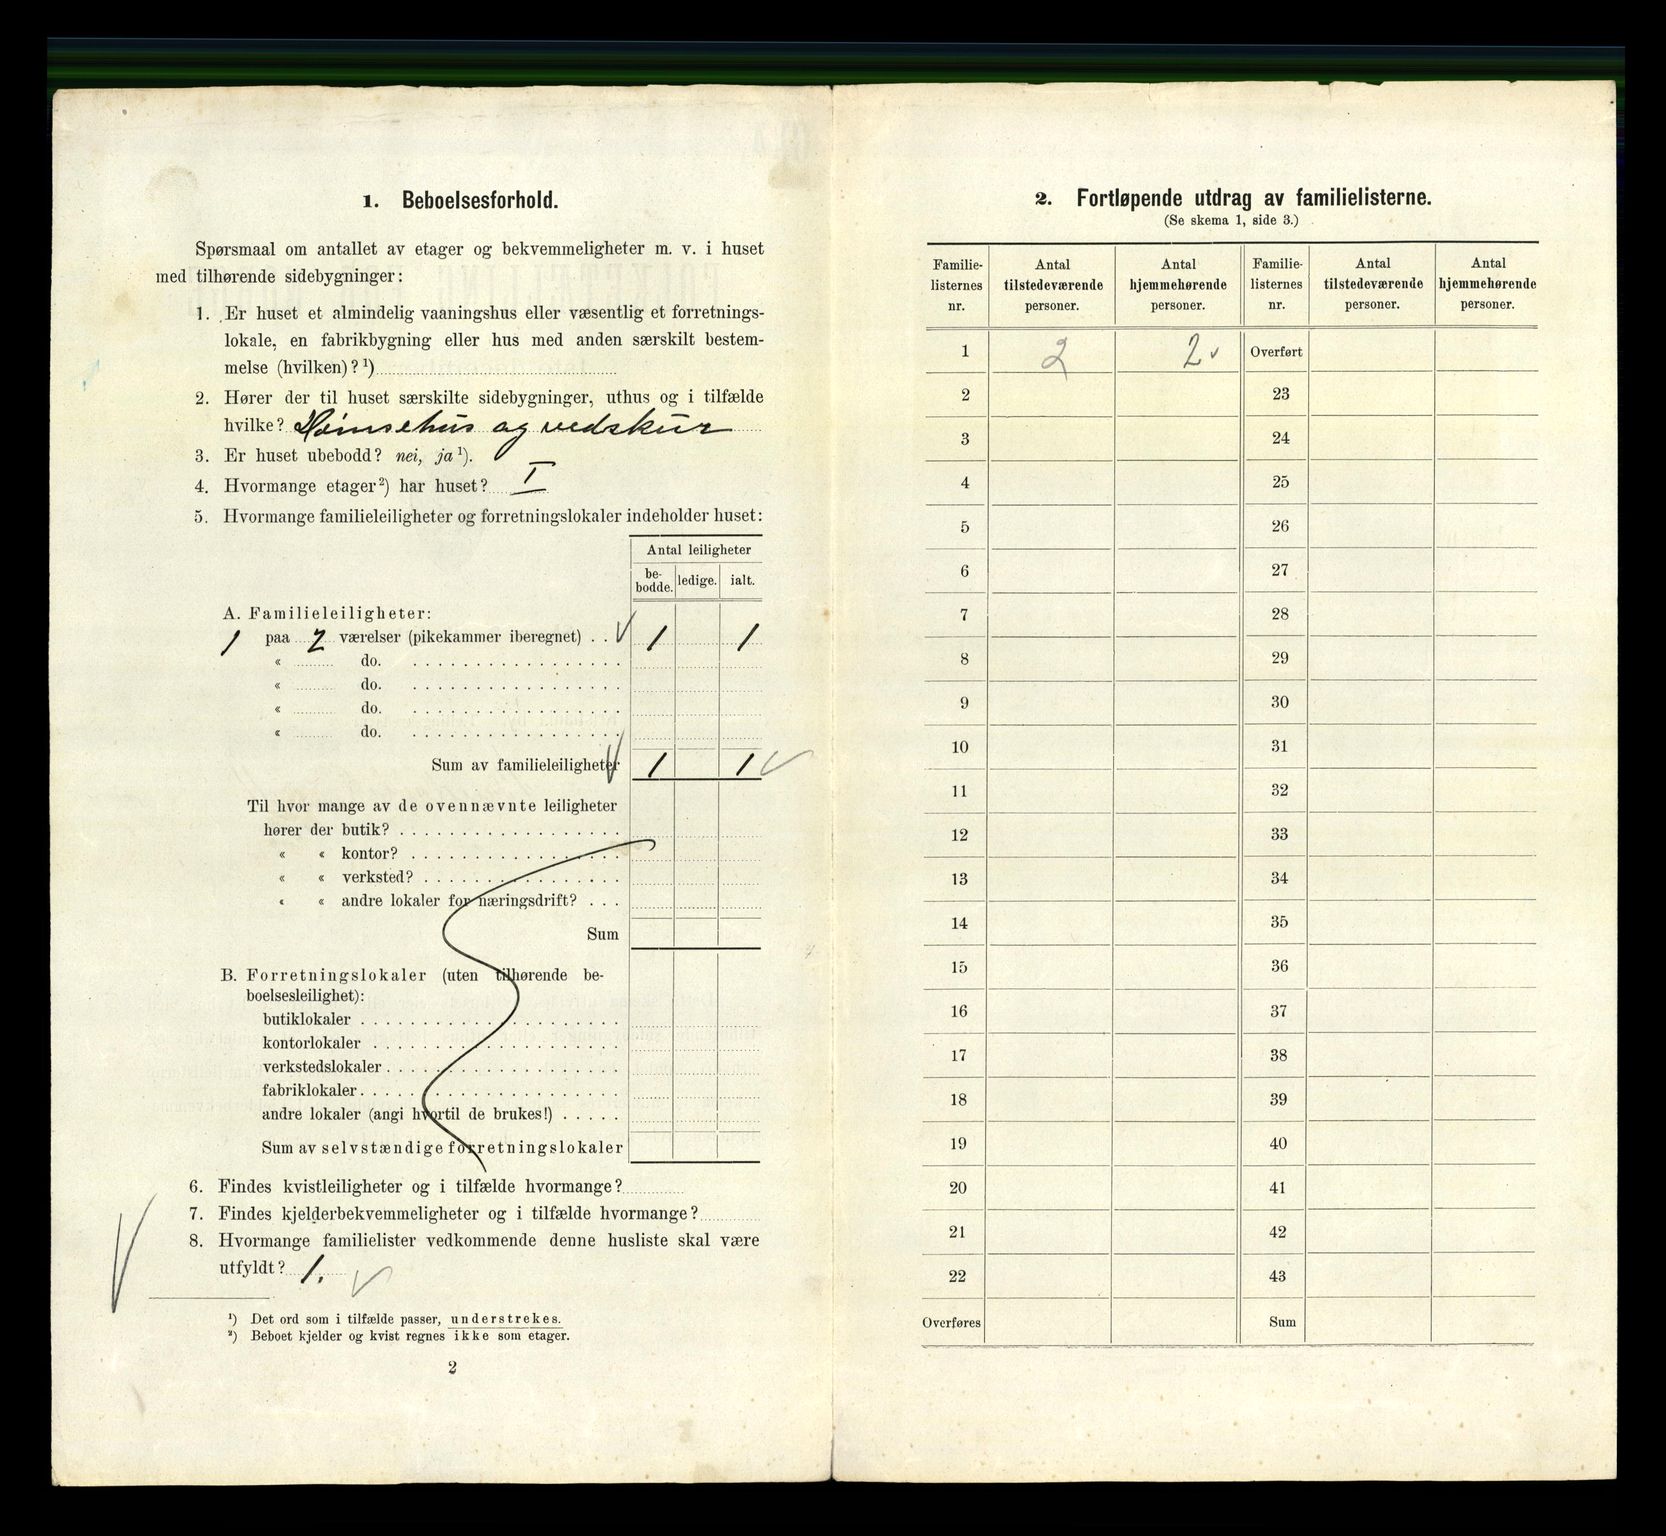 1. Beboelsesforhold.
Spørsmaal om antallet av etager og bekvemmeligheter m. v. i huset
med tilhørende sidebygninger:
1. Er huset et almindelig vaaningshus eller væsentlig et forretnings-
lokale, en fabrikbygning eller hus med anden særskilt bestem-
melse (hvilken)? ¹)
2. Hører der til huset særskilte sidebygninger, uthus og i tilfælde
hvilke? Hønsehus og vedskur
3. Er huset ubebodd? nei, ja ¹).
4. Hvormange etager ²) har huset? I
5. Hvormange familieleiligheter og forretningslokaler indeholder huset:
Antal leiligheter
be-bodde. ledige. ialt.
A. Familieleiligheter:
1 paa 2 værelser (pikekammer iberegnet) . . 1 1
« do.
« do.
« do.
« do.
Sum av familieleiligheter 1 1
Til hvor mange av de ovennævnte leiligheter
hører der butik?
« « kontor?
« « verksted?
« « andre lokaler for næringsdrift?
Sum
B. Forretningslokaler (uten tilhørende be-
boelsesleilighet):
butiklokaler
kontorlokaler
verkstedslokaler
fabriklokaler
andre lokaler (angi hvortil de brukes!)
Sum av selvstændige forretningslokaler
6. Findes kvistleiligheter og i tilfælde hvormange?
7. Findes kjelderbekvemmeligheter og i tilfælde hvormange?
8. Hvormange familielister vedkommende denne husliste skal være
utfyldt? 1.
¹) Det ord som i tilfælde passer, understrekes.
²) Beboet kjelder og kvist regnes ikke som etager.
2
2. Fortløpende utdrag av familielisterne.
(Se skema 1, side 3.)
Familie-listernes nr. Antal tilstedeværende personer. Antal hjemmehørende personer. Familie-listernes nr. Antal tilstedeværende personer. Antal hjemmehørende personer.
1 2 2 Overført
2 23
3 24
4 25
5 26
6 27
7 28
8 29
9 30
10 31
11 32
12 33
13 34
14 35
15 36
16 37
17 38
18 39
19 40
20 41
21 42
22 43
Overføres Sum